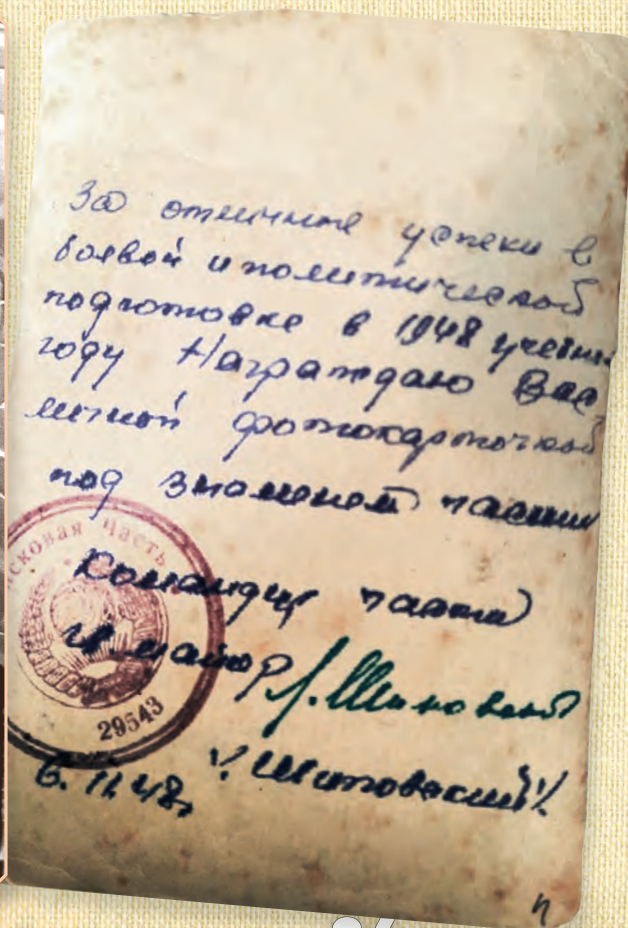 За отличные успехи в
боевой и политической
подготовке в 1948 учебном
году Награждаю Вас
личной фотокарточкой
под знаменем части
Командир части
гв. майор
/Шиповский/
6.11.48г.
сковая часть
29543